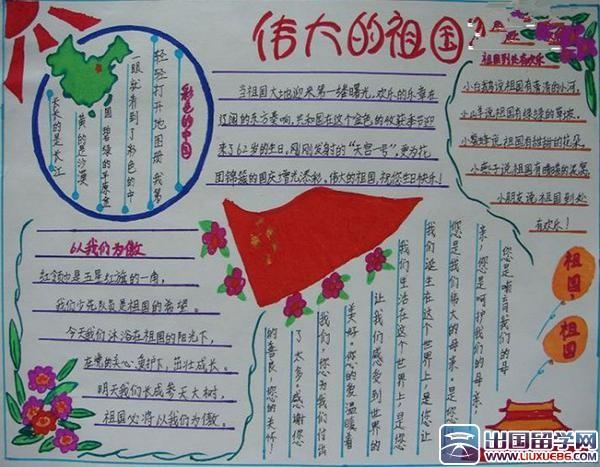 伟大的祖国
彩色的中国
轻轻打开地图册,我第
一眼就看到了彩色的中
国,碧绿的平原金
黄的是沙漠
长长的是长江
当祖国大地迎来第一缕曙光,欢乐的乐章在
辽阔的东方奏响,共和国在这个金色的收获季节迎
来了62岁的生日,刚刚发射的“天宫一号”,更为花
团锦簇的国庆增光添彩。伟大的祖国,祝您生日快乐!
祖国到处有欢乐
小白鹅说祖国有清清的小河,
小羊说祖国有绿绿的草坡,
小蜜蜂说祖国有甜甜的花朵,
小燕子说祖国有暖暖的窝窝,
小朋友说祖国到处
有欢乐!
以我们为傲
红领巾是五星红旗的一角,
我们少先队员是祖国的希望。
今天我们沐浴在祖国的阳光下,
在党的关心、爱护下,茁壮成长。
明天我们长成参天大树,
祖国必将以我们为傲。
您是哺育我们的母
亲,您是呵护我们的母亲,
您是我们伟大的母亲,是您让
我们诞生在这个世界上,是您让
我们生活在这个世界上,是您
让我们感受到世界的
美好。您的爱温暖着
我们,您为我们付出
了太多,感谢您
的善良,您的关怀!
祖国,
祖国
出国留学网
WWW.LIUXUE86.COM